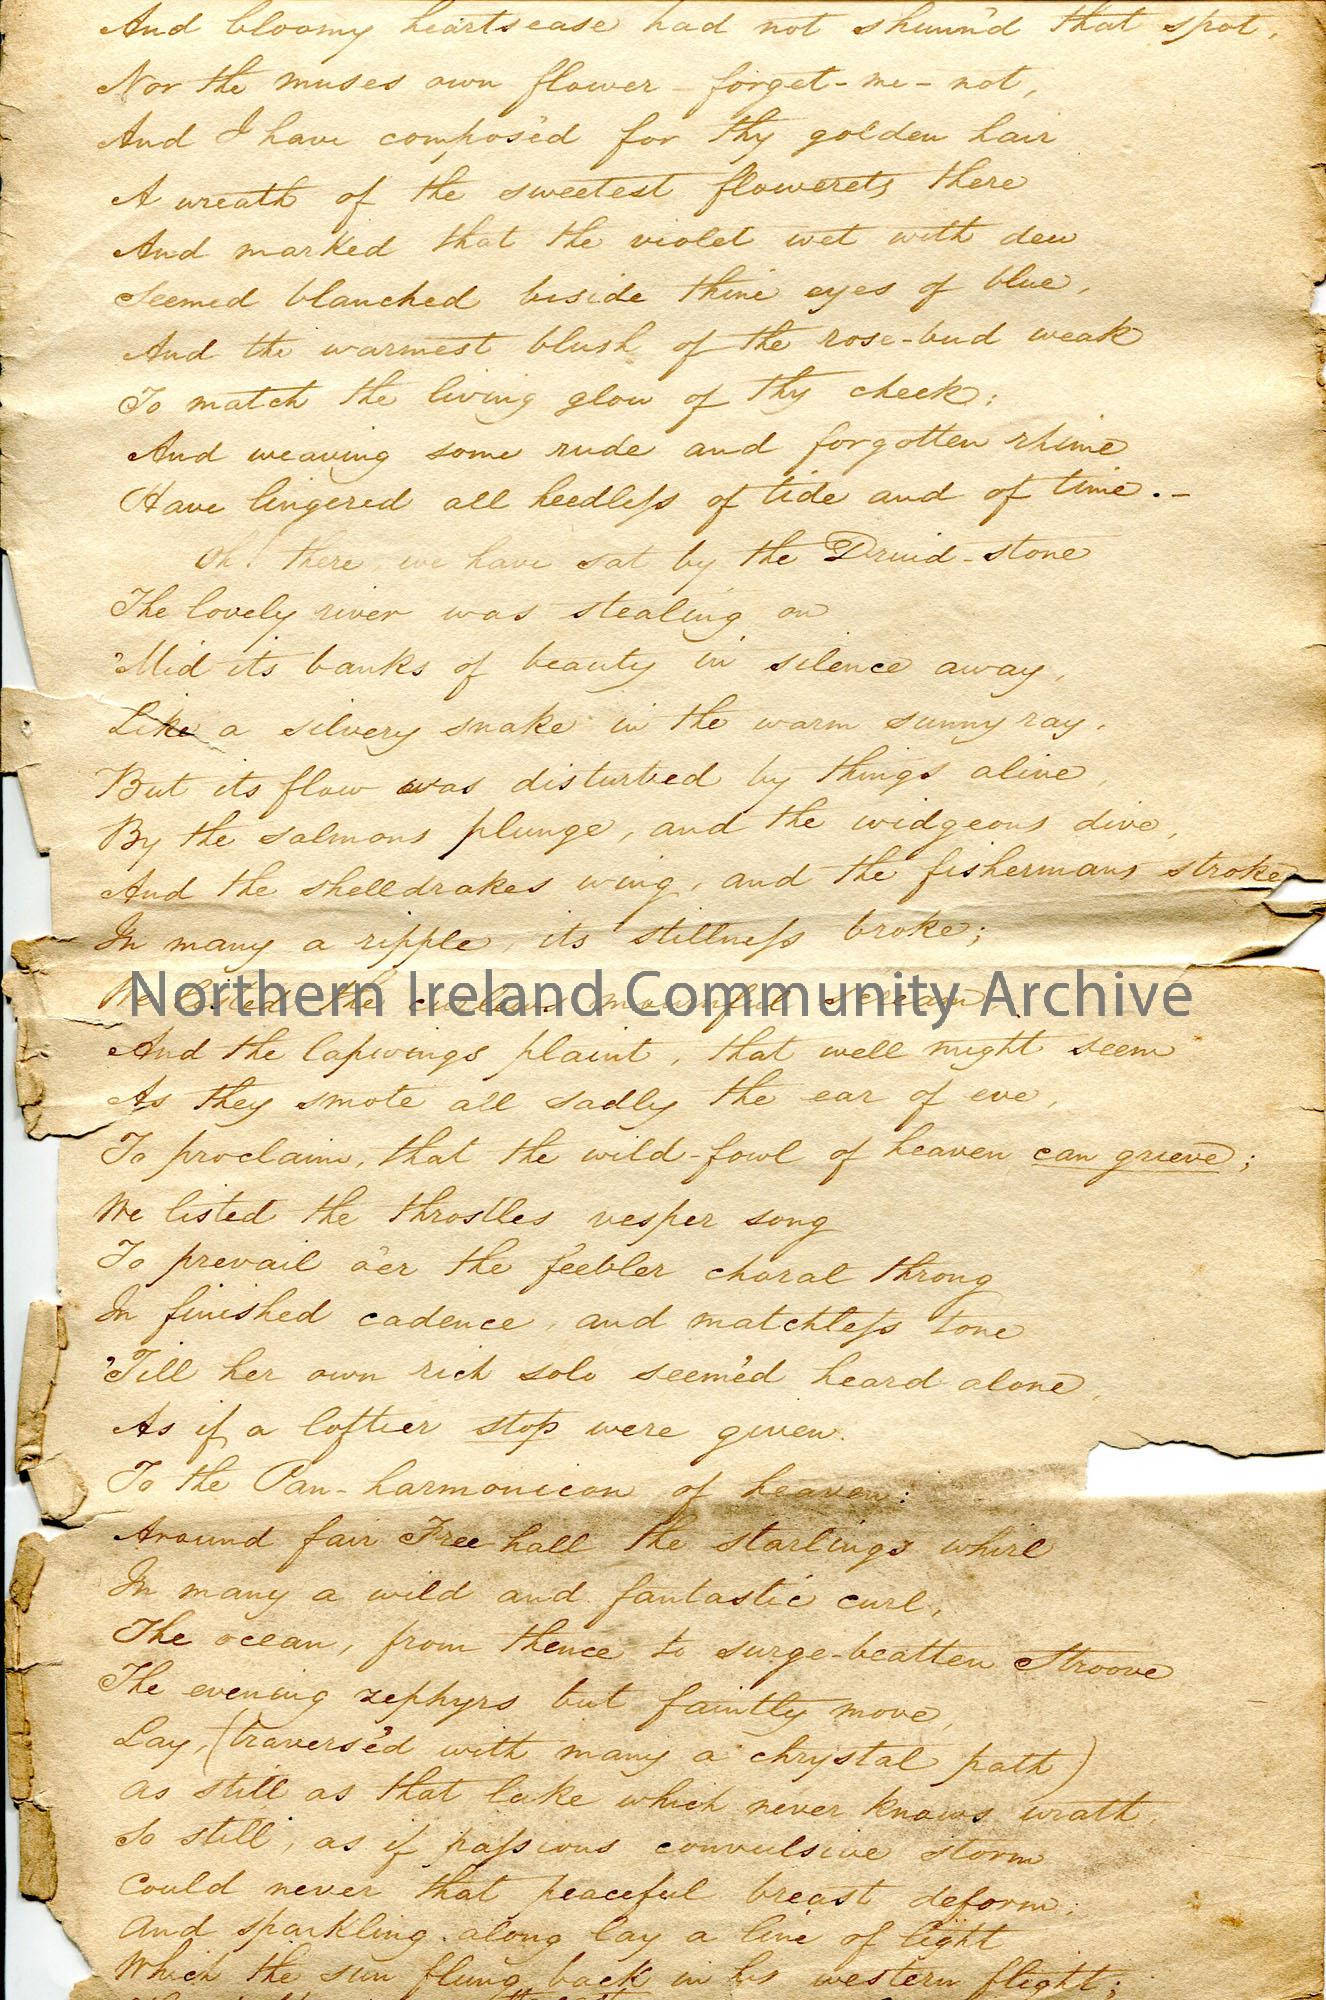 And bloomy heartsease had not shunn'd that spot,
Nor the muses own flower – forget-me-not,
And I have compos'd for thy golden hair
A wreath of the sweetest flowerets there
And marked that the violet wet with dew
Seemed blanched beside thine eyes of blue,
And the warmest blush of the rose-bud weak
To match the living glow of thy cheek;
And weaving some rude and forgotten rhime
Have lingered all heedless of tide and of time. –
Oh! there we have sat by the Druid-stone
The lovely river was stealing on
'Mid its banks of beauty in silence away,
Like a silvery snake in the warm sunny ray,
But its flow was disturbed by things alive
By the salmons plunge, and the widgeons dive,
And the shelldrakes wing, and the fishermans stroke
In many a ripple, its stillness broke;
We listed the curlews mournful scream
Northern Ireland Community Archive
And the lapwings plaint, that well might seem
As they smote all sadly the ear of eve,
To proclaim, that the wild-fowl of heaven can grieve;
We listed the throstles vesper song
To prevail o'er the feebler choral throng
In finished cadence, and matchless tone
'Till her own rich solo seem'd heard alone,
As if a loftier stop were given
To the Pan-harmonicon of heaven:
Around fair Free hall the starlings whirl
In many a wild and fantastic curl,
The ocean, from thence to surge-beatten Stroove
The evening zephyrs but faintly move,
Lay, (travers'd with many a chrystal path)
as still as that lake which never knows wrath,
So still, as if passions convulsive storm
Could never that peaceful breast deform;
And sparkling along lay a line of light
Which the sun flung back in his western flight;